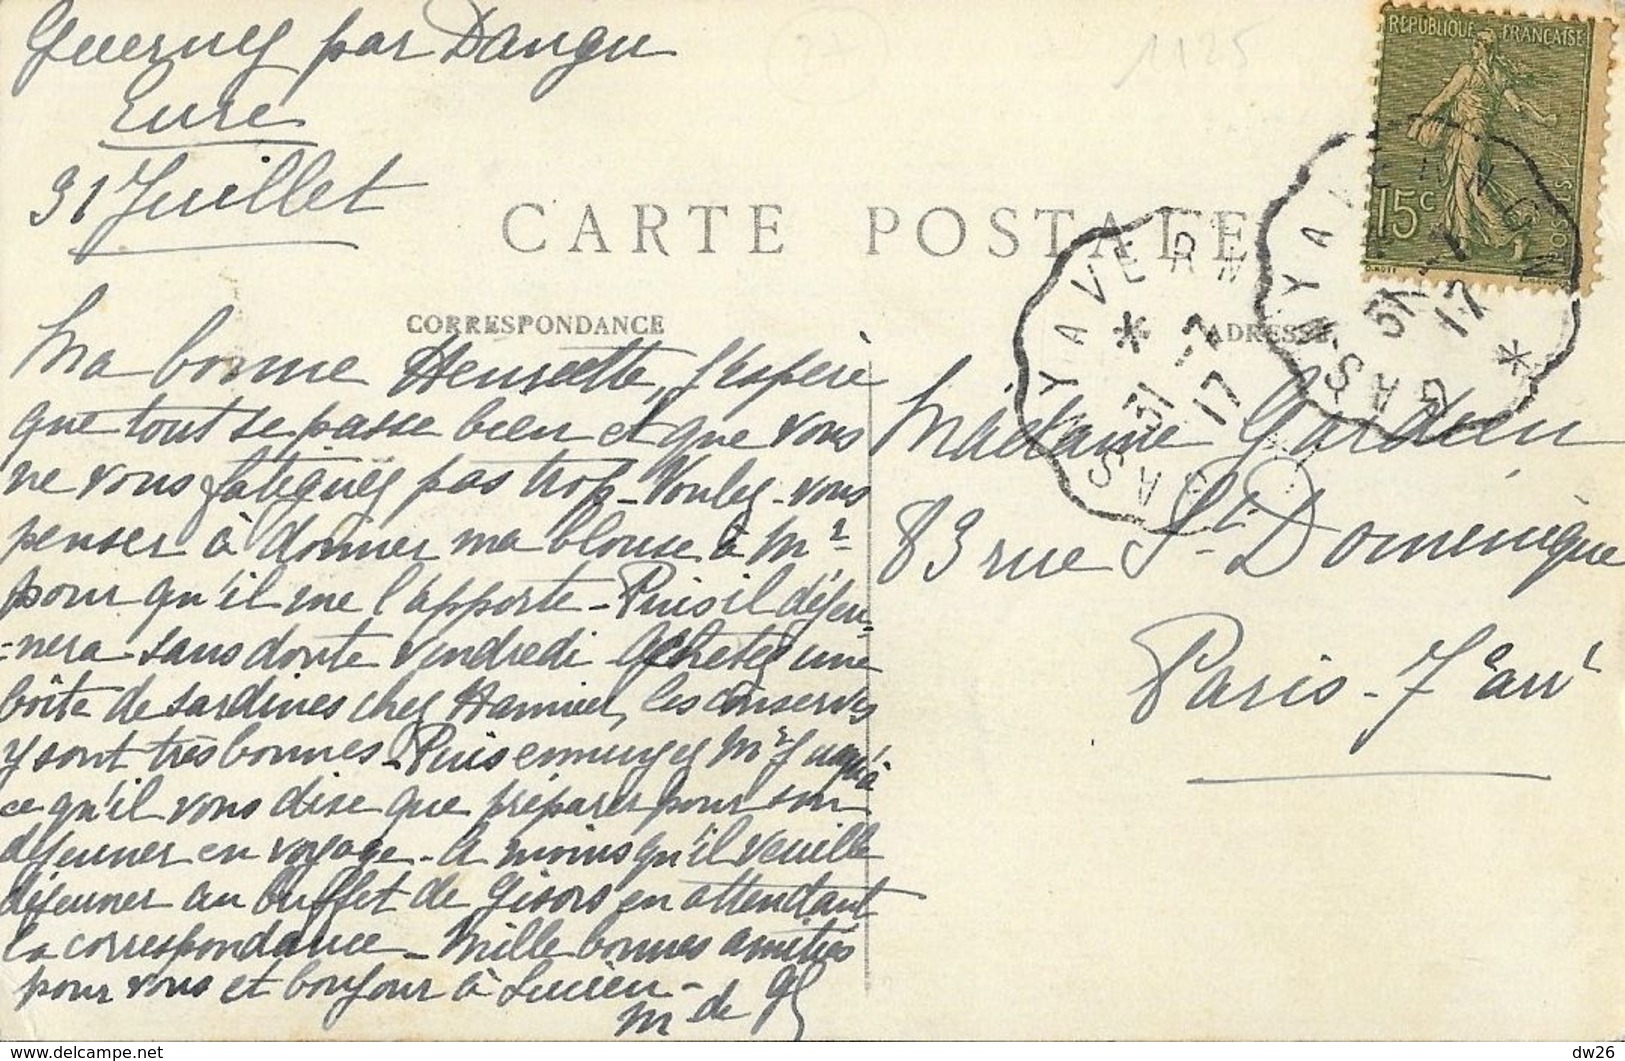 Guerny par Dangu
Eure
31 Juillet
1125
RÉPUBLIQUE FRANÇAISE
15c
POSTES
CARTE POSTALE
CORRESPONDANCE
ADRESSE
31 -7
17
31 -7
17
Ma bonne Henriette, j'espère
que tout se passe bien et que vous
ne vous fatiguez pas trop - Voulez-vous
penser à donner ma blouse à Mr
pour qu'il me l'apporte - Puis il déjeu-
-nera sans doute vendredi Achetez une
boîte de sardines chez Hamiel, les conserves
y sont très bonnes - Puis Mr jusqu'à
ce qu'il vous dise que préparer pour son
déjeuner en voyage - A moins qu'il veuille
déjeuner au buffet de Gisors en attendant
la correspondance - Mille bonnes amitiés
pour vous et bonjour à Lucien -
M de
Madame Gardien
83 rue St Dominique
Paris - 7e arrt
dw26